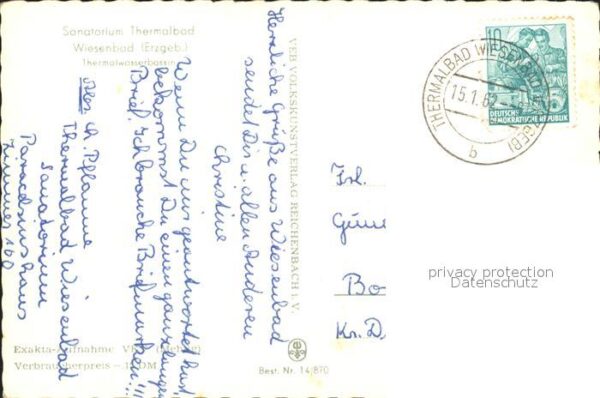 Sanatorium Thermalbad
Wiesenbad (Erzgeb.)
Thermalwasserbassin
Herzliche Grüße aus Wiesenbad
sendet Dir u. allen Anderen
Christine
Wenn Du uns geantwortet hast
bekommst Du einen ganz langen
Brief. Ich brauche Briefmarken!!!
Abs. Ch. Pflamme
Thermalbad Wiesenbad
Sanatorium
Paracelsushaus
Zimmer 160
VEB VOLKSKUNSTVERLAG REICHENBACH i. V.
THERMALBAD WIESENBAD (ERZGEB)
15.1.62
b
10
DEUTSCHE
DEMOKRATISCHE REPUBLIK
Frl.
Bo
Kr. D.
privacy protection
Datenschutz
Exakta-Aufnahme:
Verbraucherpreis
DM
Best. Nr. 14/870